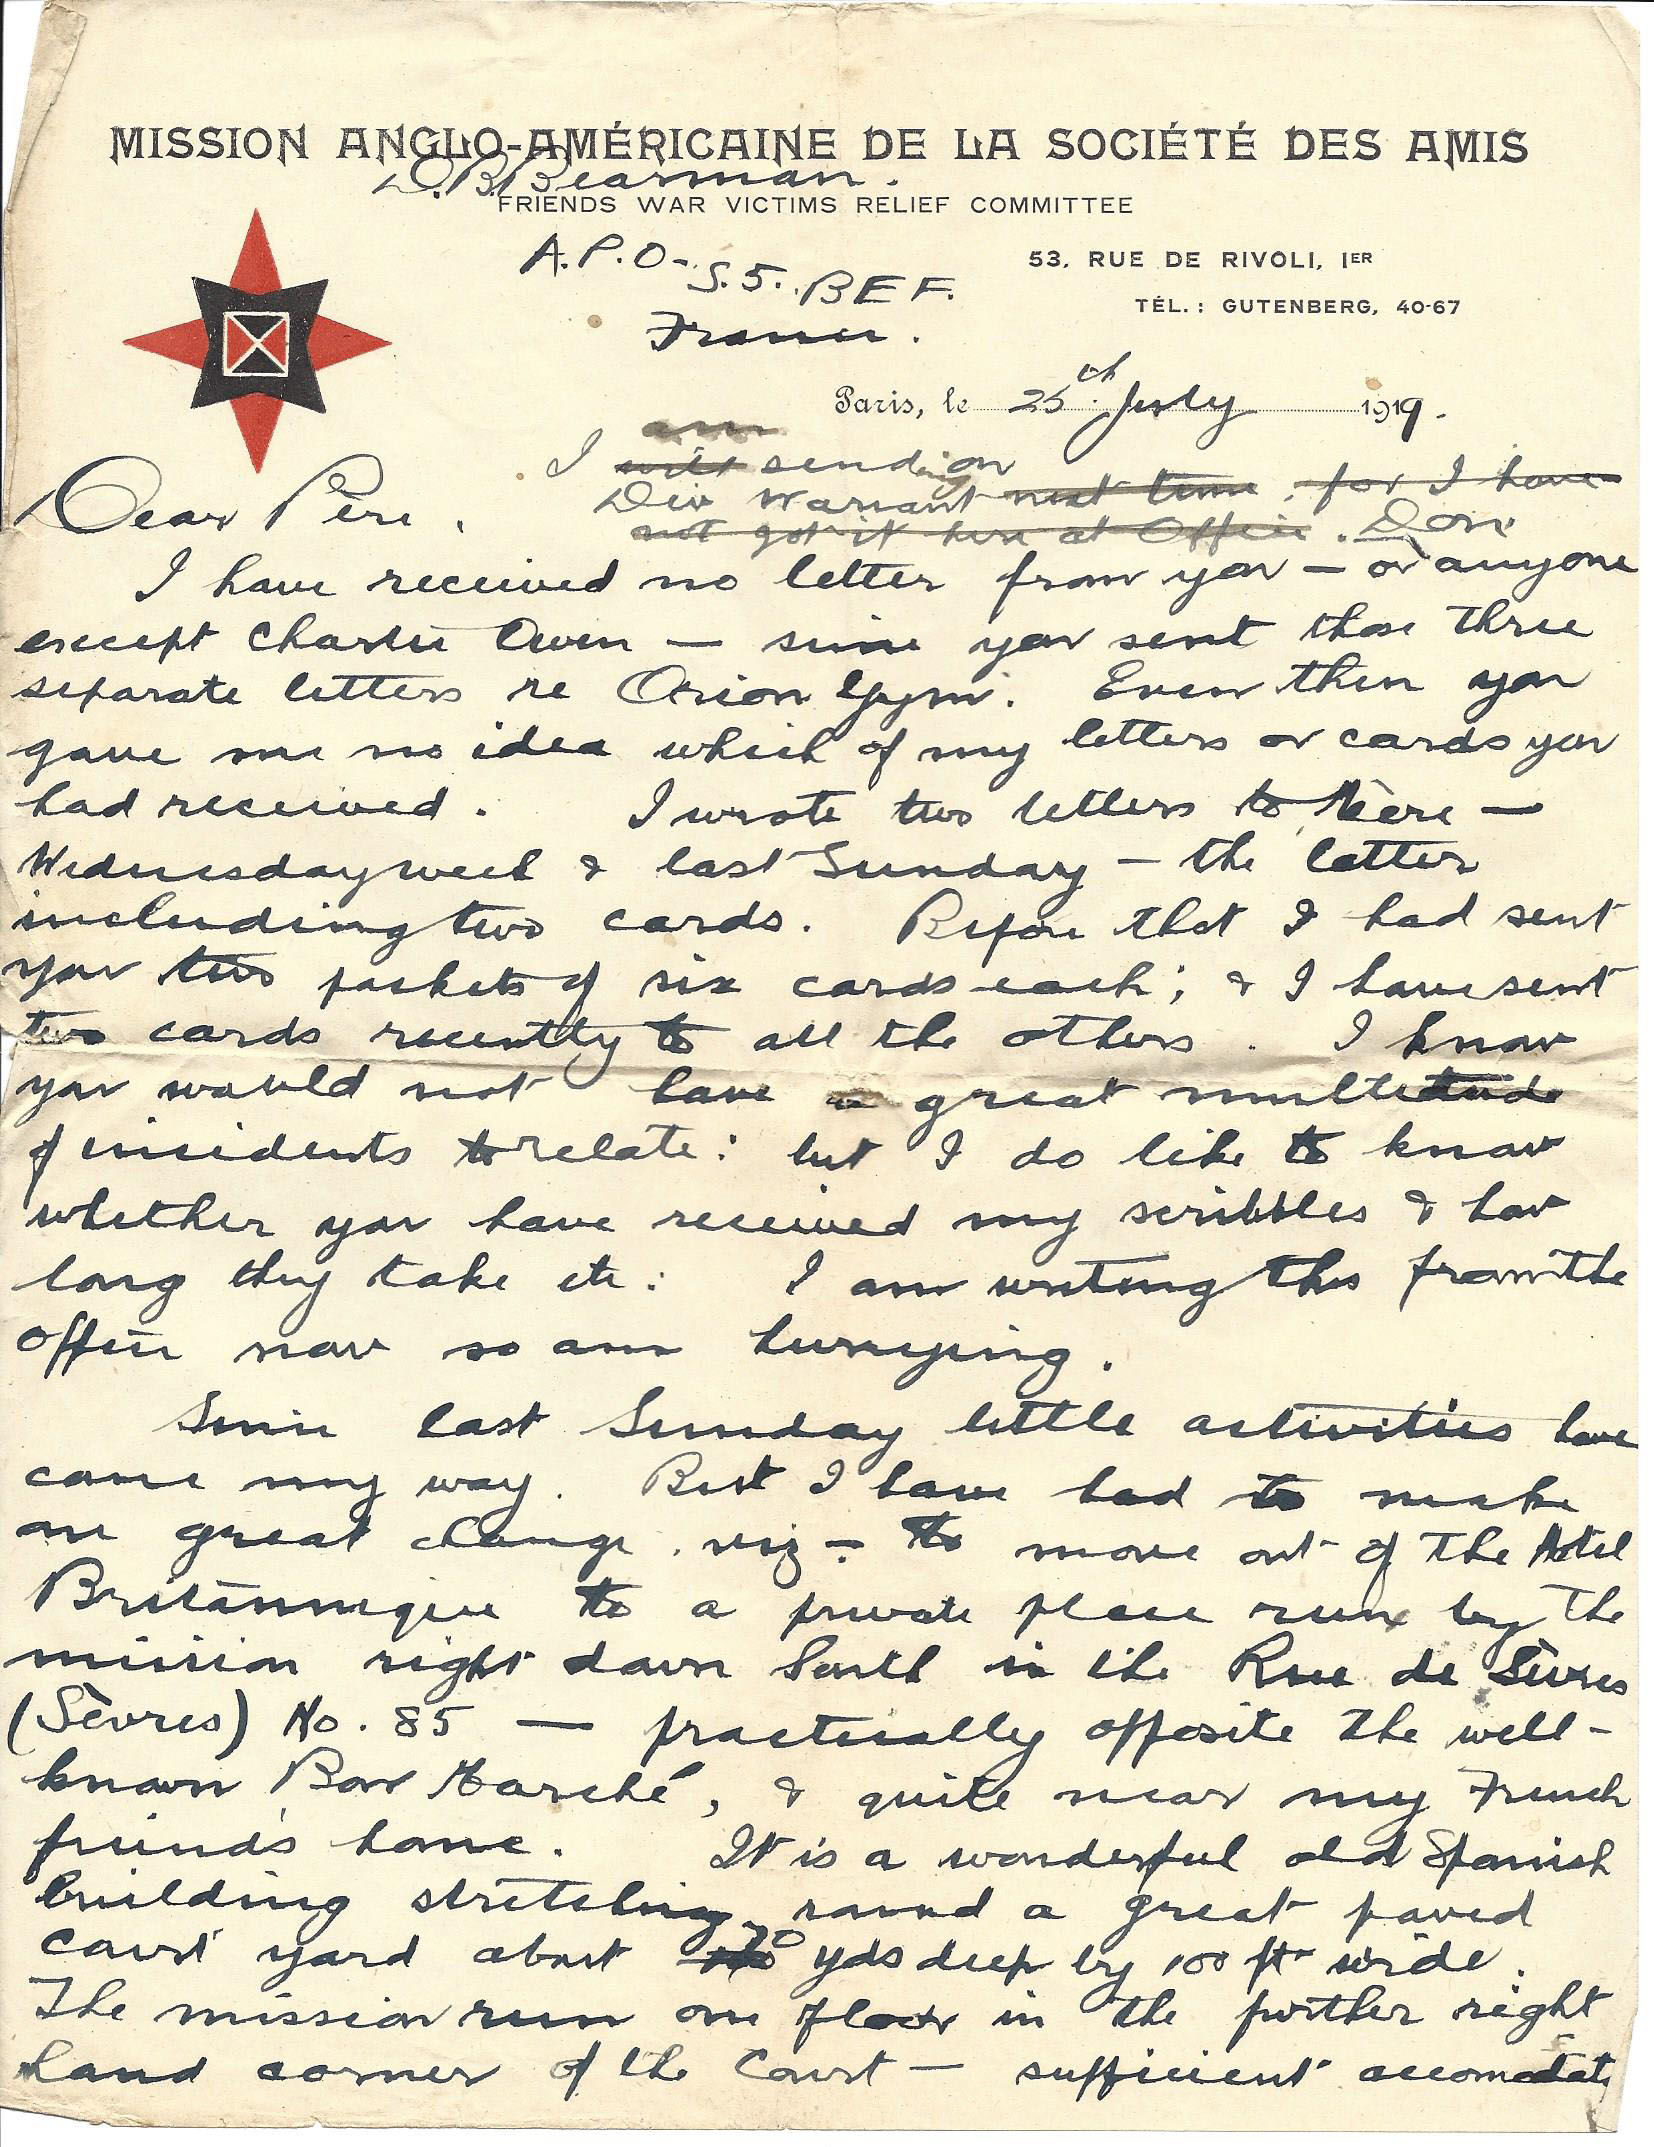 MISSION ANGLO-AMÉRICAINE DE LA SOCIÉTÉ DES AMIS
D. B. Bearman.
FRIENDS WAR VICTIMS RELIEF COMMITTEE
A.P.O. S.5. BEF.
France.
53, RUE DE RIVOLI, IER
TÉL. : GUTENBERG, 40-67
Paris, le 25th July 1919.
I will am sending on
Div Warrant next time, for I have
not got it here at Office. Don
Dear Père,
I have received no letter from you — or anyone
except Charlie Owen — since you sent those three
separate letters re Orion Gym. Even then you
gave me no idea which of my letters or cards you
had received. I wrote two letters to Mère —
Wednesday week & last Sunday — the latter
including two cards. Before that I had sent
you two packets of six cards each; & I have sent
two cards recently to all the others. I know
you would not have a great multitude
of incidents to relate: but I do like to know
whether you have received my scribbles & how
long they take etc: I am writing this from the
Office now so am hurrying.
Since last Sunday little activities have
come my way. But I have had to make
one great change, viz — to move out of the Hotel
Britannique to a private place run by the
mission right down South in the Rue de Sèvres
(Sèvres) No. 85 — practically opposite the well-
known Bon Marché, & quite near my French
friend's home. It is a wonderful old Spanish
building stretching round a great paved
court yard about 70 yds deep by 100 ft wide.
The mission run one floor in the further right
hand corner of the Court — sufficient accomodat